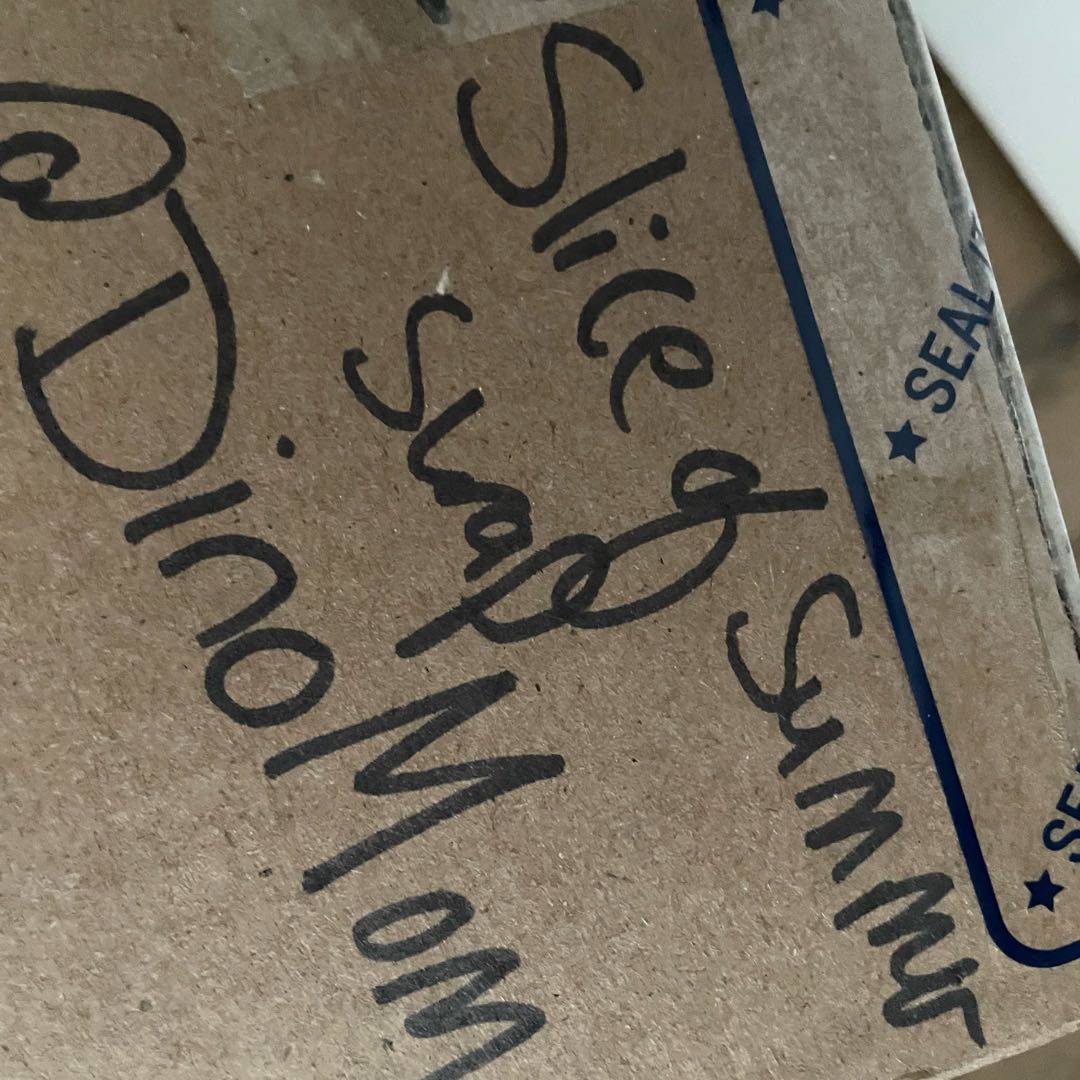 Sliced Summer
Swap
@DinoMom
★ SEAL
★ SE